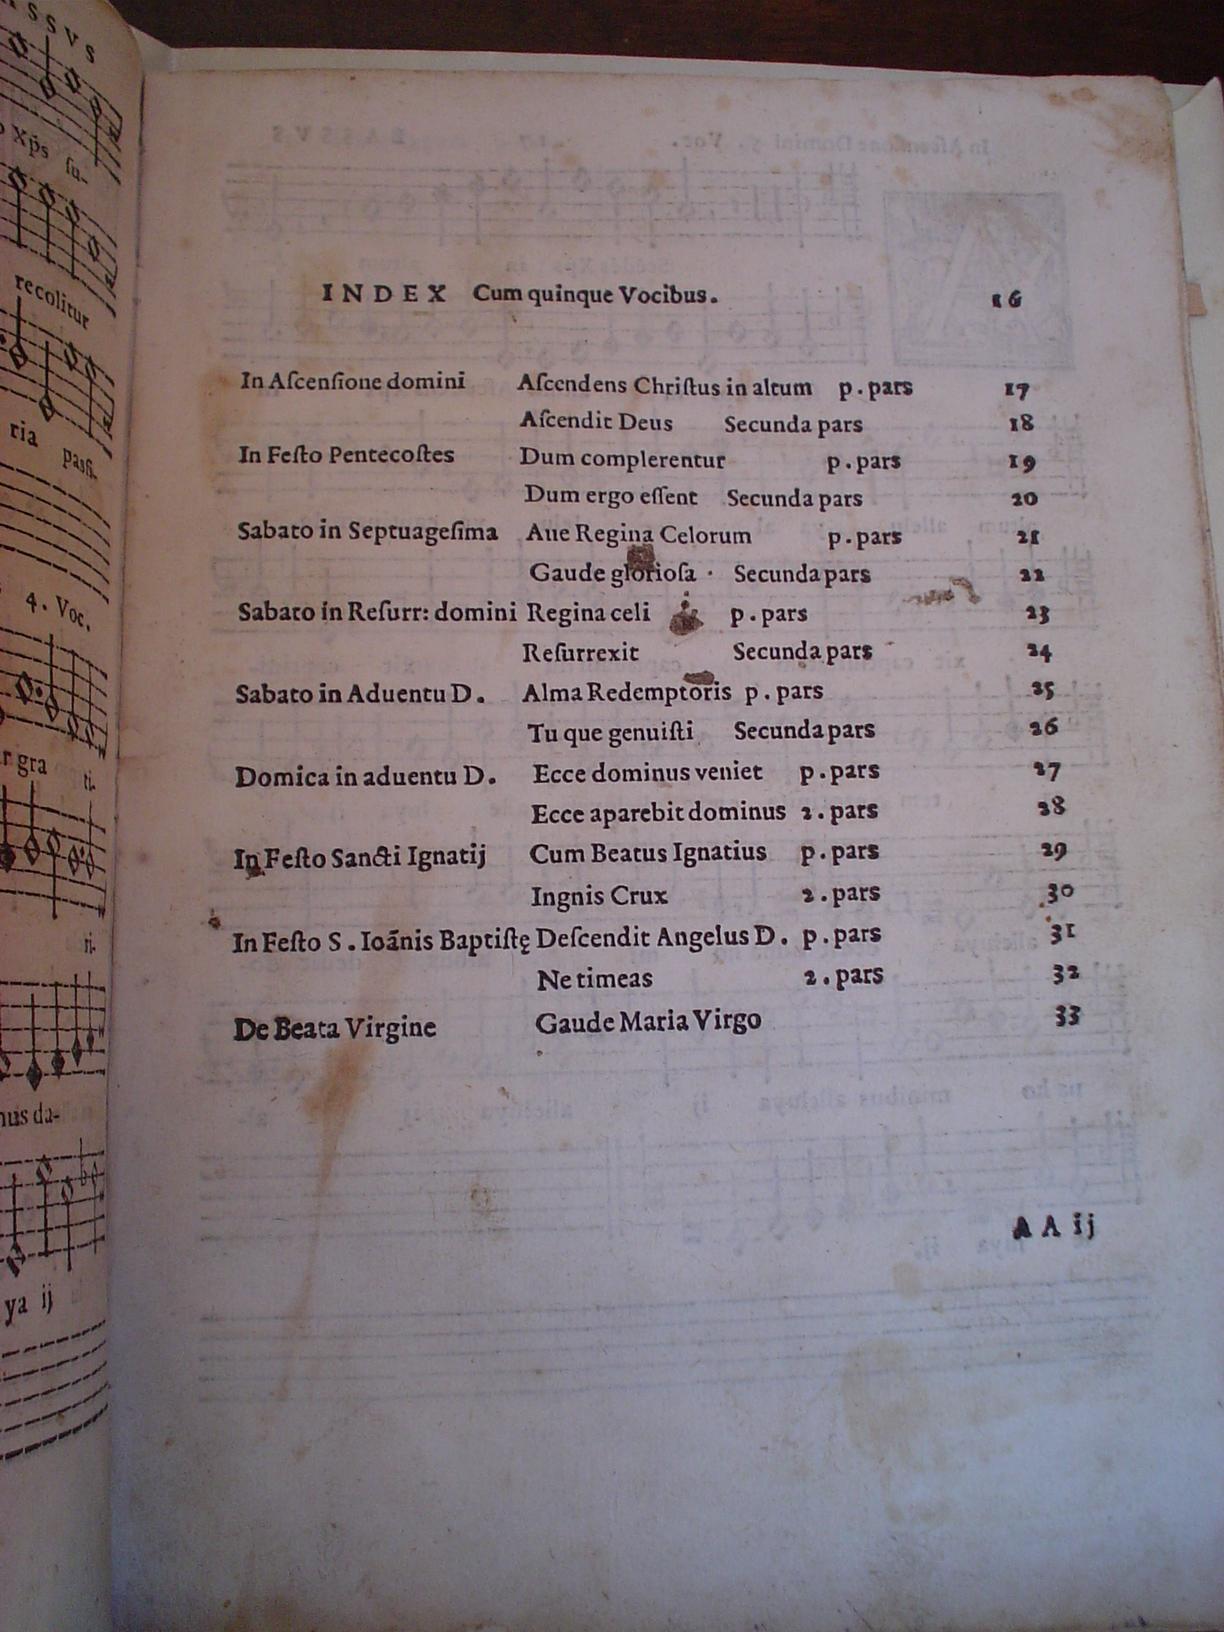 ASSVS
Xp̃s su-
recolitur
ria passi-
4. Voc.
gra ti-
ri-
nus da-
ya ij
INDEX Cum quinque Vocibus. 16
In Ascensione domini Ascendens Christus in altum p. pars 17
Ascendit Deus Secunda pars 18
In Festo Pentecostes Dum complerentur p. pars 19
Dum ergo essent Secunda pars 20
Sabato in Septuagesima Aue Regina Celorum p. pars 21
Gaude gloriosa · Secunda pars 22
Sabato in Resurr: domini Regina celi p. pars 23
Resurrexit Secunda pars 24
Sabato in Aduentu D. Alma Redemptoris p. pars 25
Tu que genuisti Secunda pars 26
Domica in aduentu D. Ecce dominus veniet p. pars 27
Ecce aparebit dominus 2. pars 28
In Festo Sancti Ignatij Cum Beatus Ignatius p. pars 29
Ingnis Crux 2. pars 30
In Festo S. Ioãnis Baptistę Descendit Angelus D. p. pars 31
Ne timeas 2. pars 32
De Beata Virgine Gaude Maria Virgo 33
AA ij